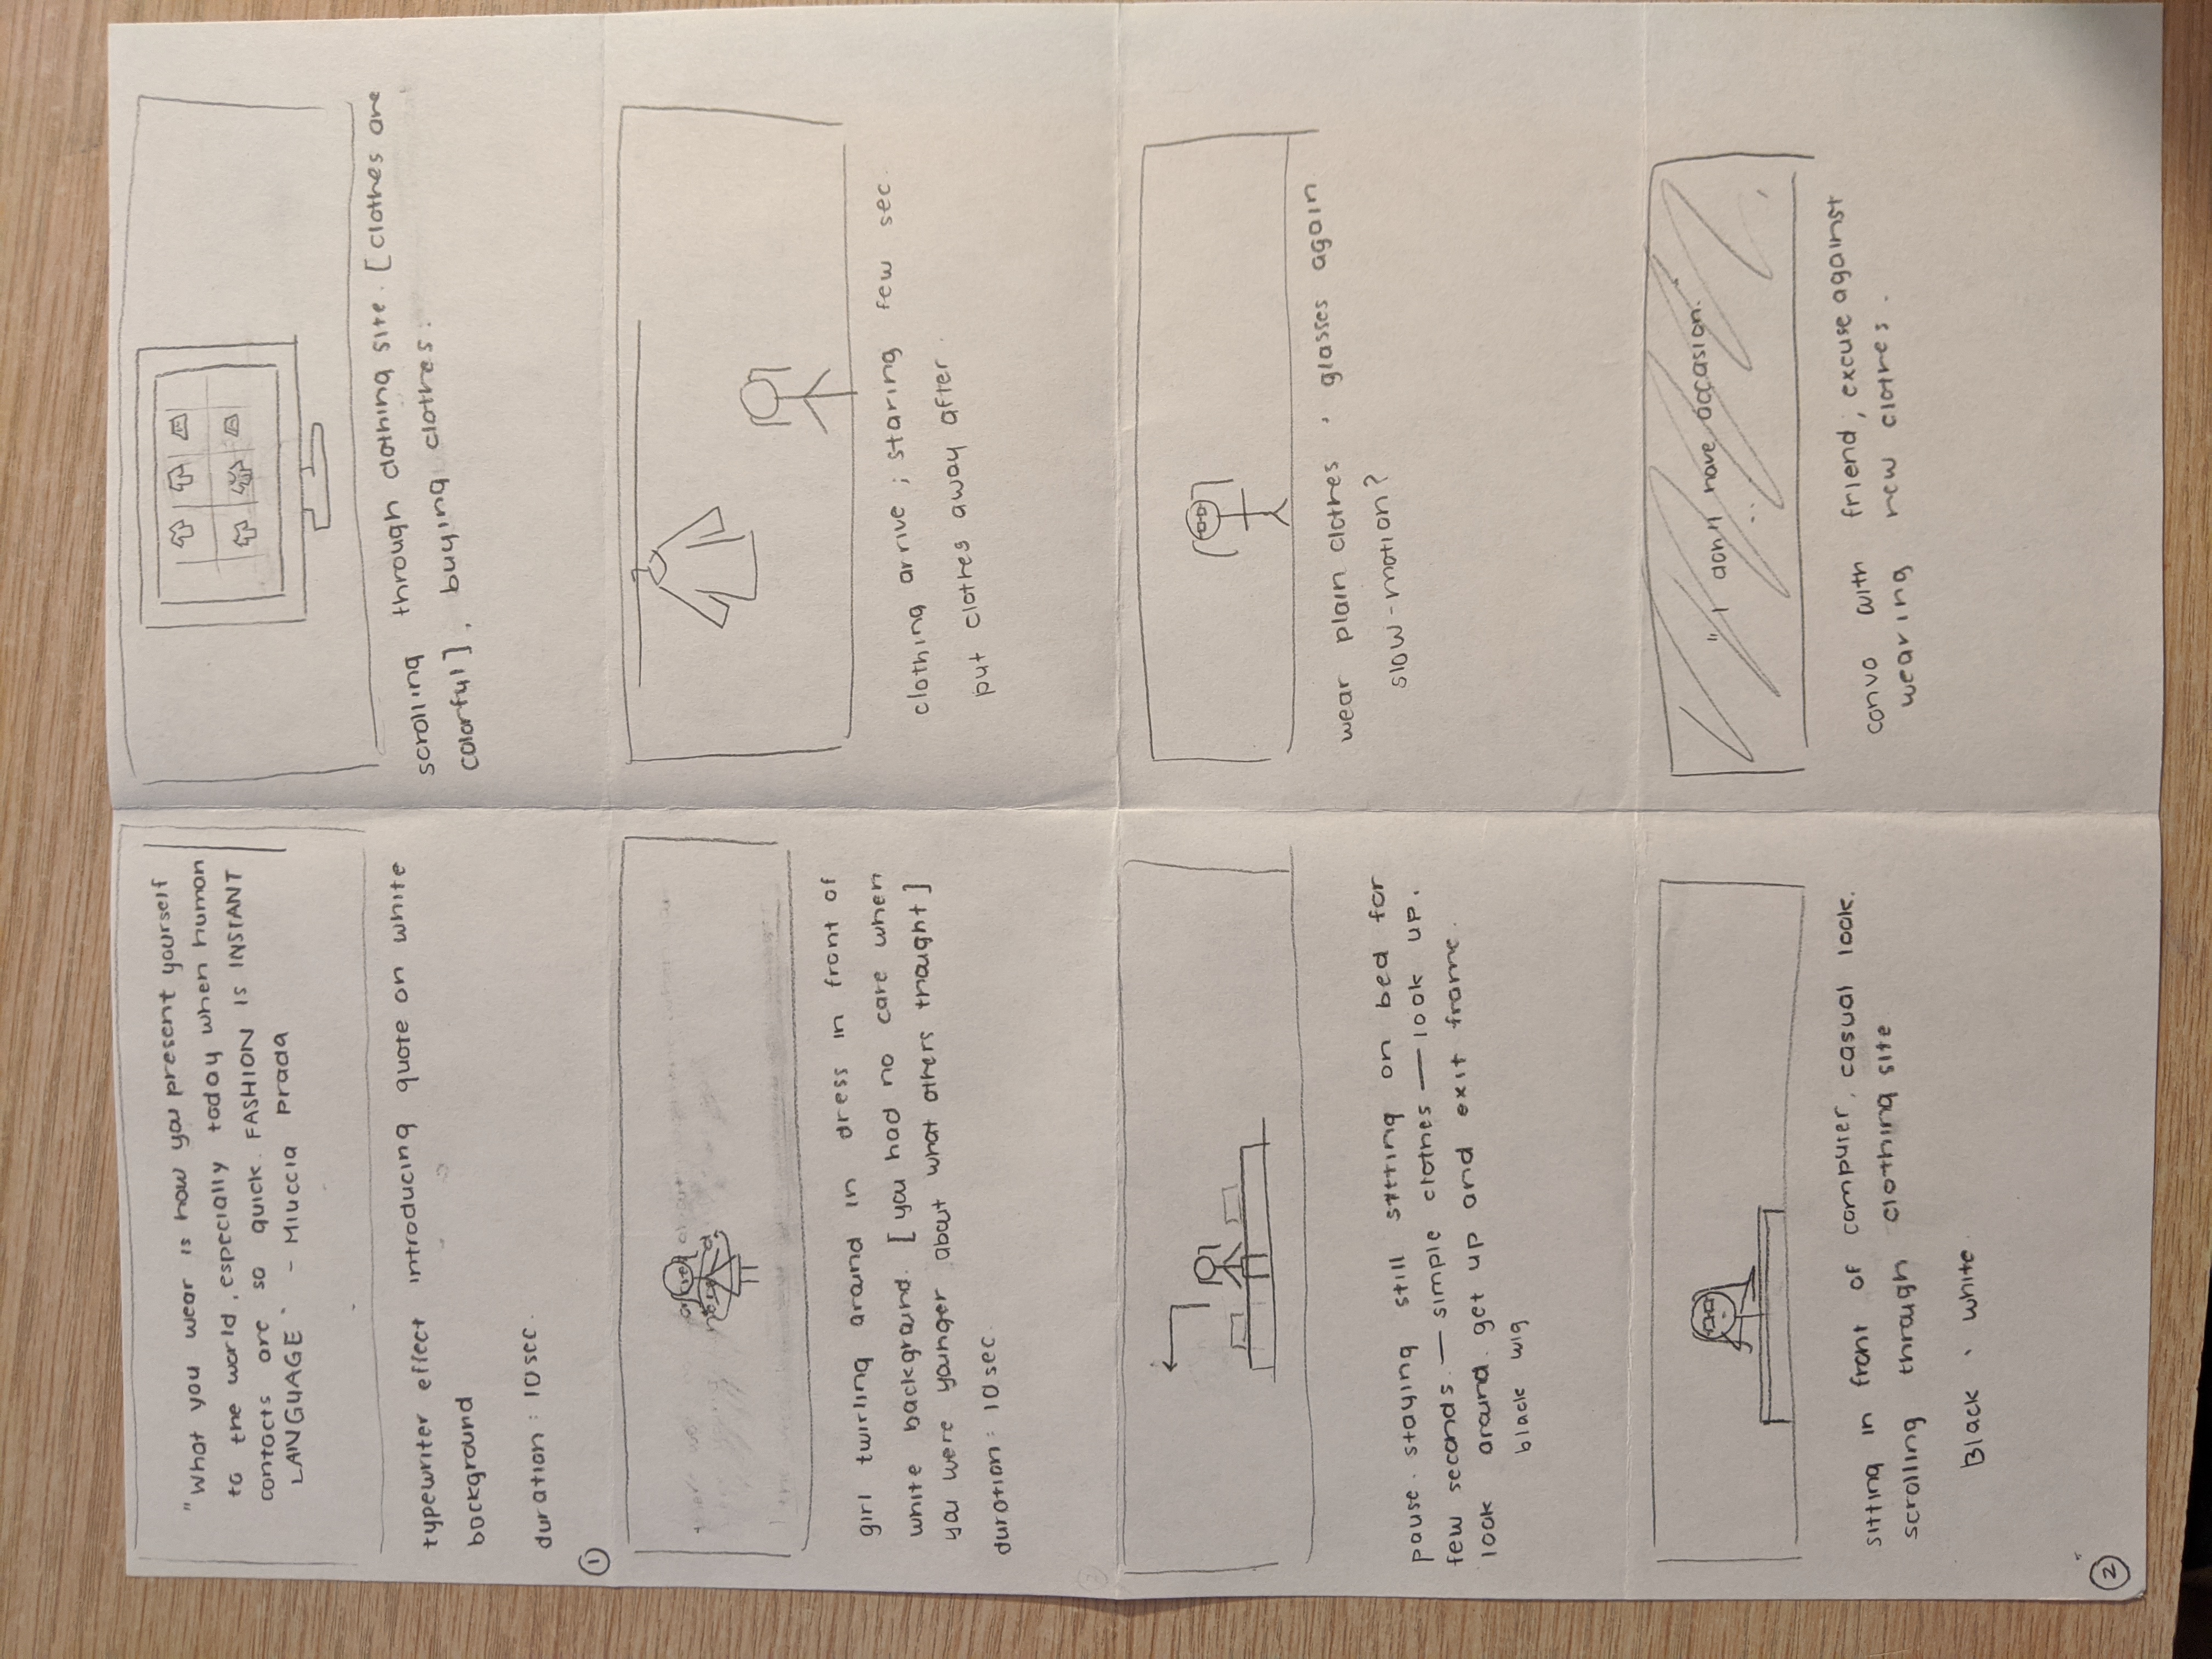 "What you wear is how you present yourself
to the world, especially today when human
contacts are so quick. FASHION IS INSTANT
LANGUAGE" - Miuccia Prada
typewriter effect introducing quote on white
background
duration: 10 sec.
1
girl twirling around in dress in front of
white background. [you had no care when
you were younger about what others thought]
duration: 10 sec.
pause. staying still sitting on bed for
few seconds. — simple clothes — look up.
look around. get up and exit frame.
black wig
sitting in front of computer, casual look.
scrolling through clothing site
Black · white.
2
scrolling through clothing site. [clothes are
colorful], buying clothes.
clothing arrive ; staring few sec.
put clothes away after.
wear plain clothes · glasses again
slow-motion?
"I don't have occasion."
convo with friend; excuse against
wearing new clothes.